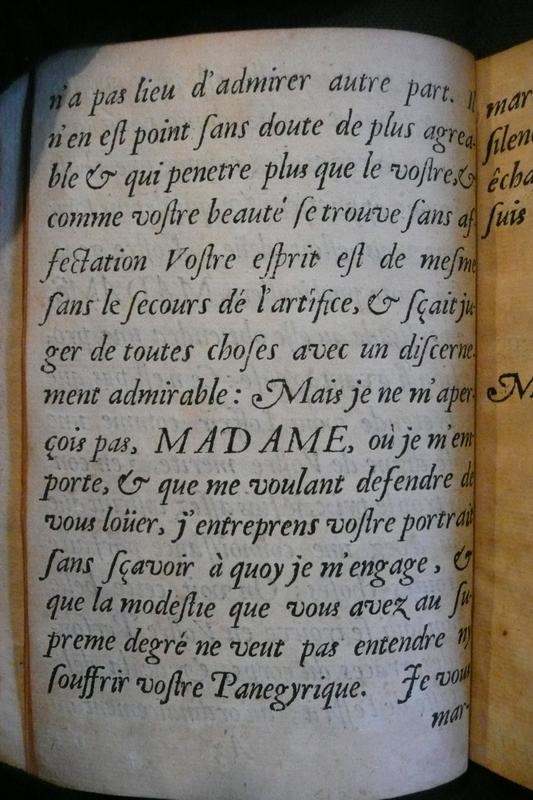 n'a pas lieu d'admirer autre part. Il
n'en eſt point ſans doute de plus agrea-
ble & qui penetre plus que le voſtre, &
comme voſtre beauté ſe trouve ſans af-
fectation Voſtre eſprit eſt de meſme
ſans le ſecours dé l'artífice, & ſçait ju-
ger de toutes choſes avec un diſcerne-
ment admirable : Mais je ne m'aper-
çois pas, MADAME, où je m'em-
porte, & que me voulant defendre de
vous loüer, j'entreprens voſtre portrait
ſans ſçavoir à quoy je m'engage, &
que la modeſtie que vous avez au ſu-
preme degré ne veut pas entendre ny
ſouffrir voſtre Panegyrique. Je vous
mar-
mar
ſilen
écha
ſuis
M